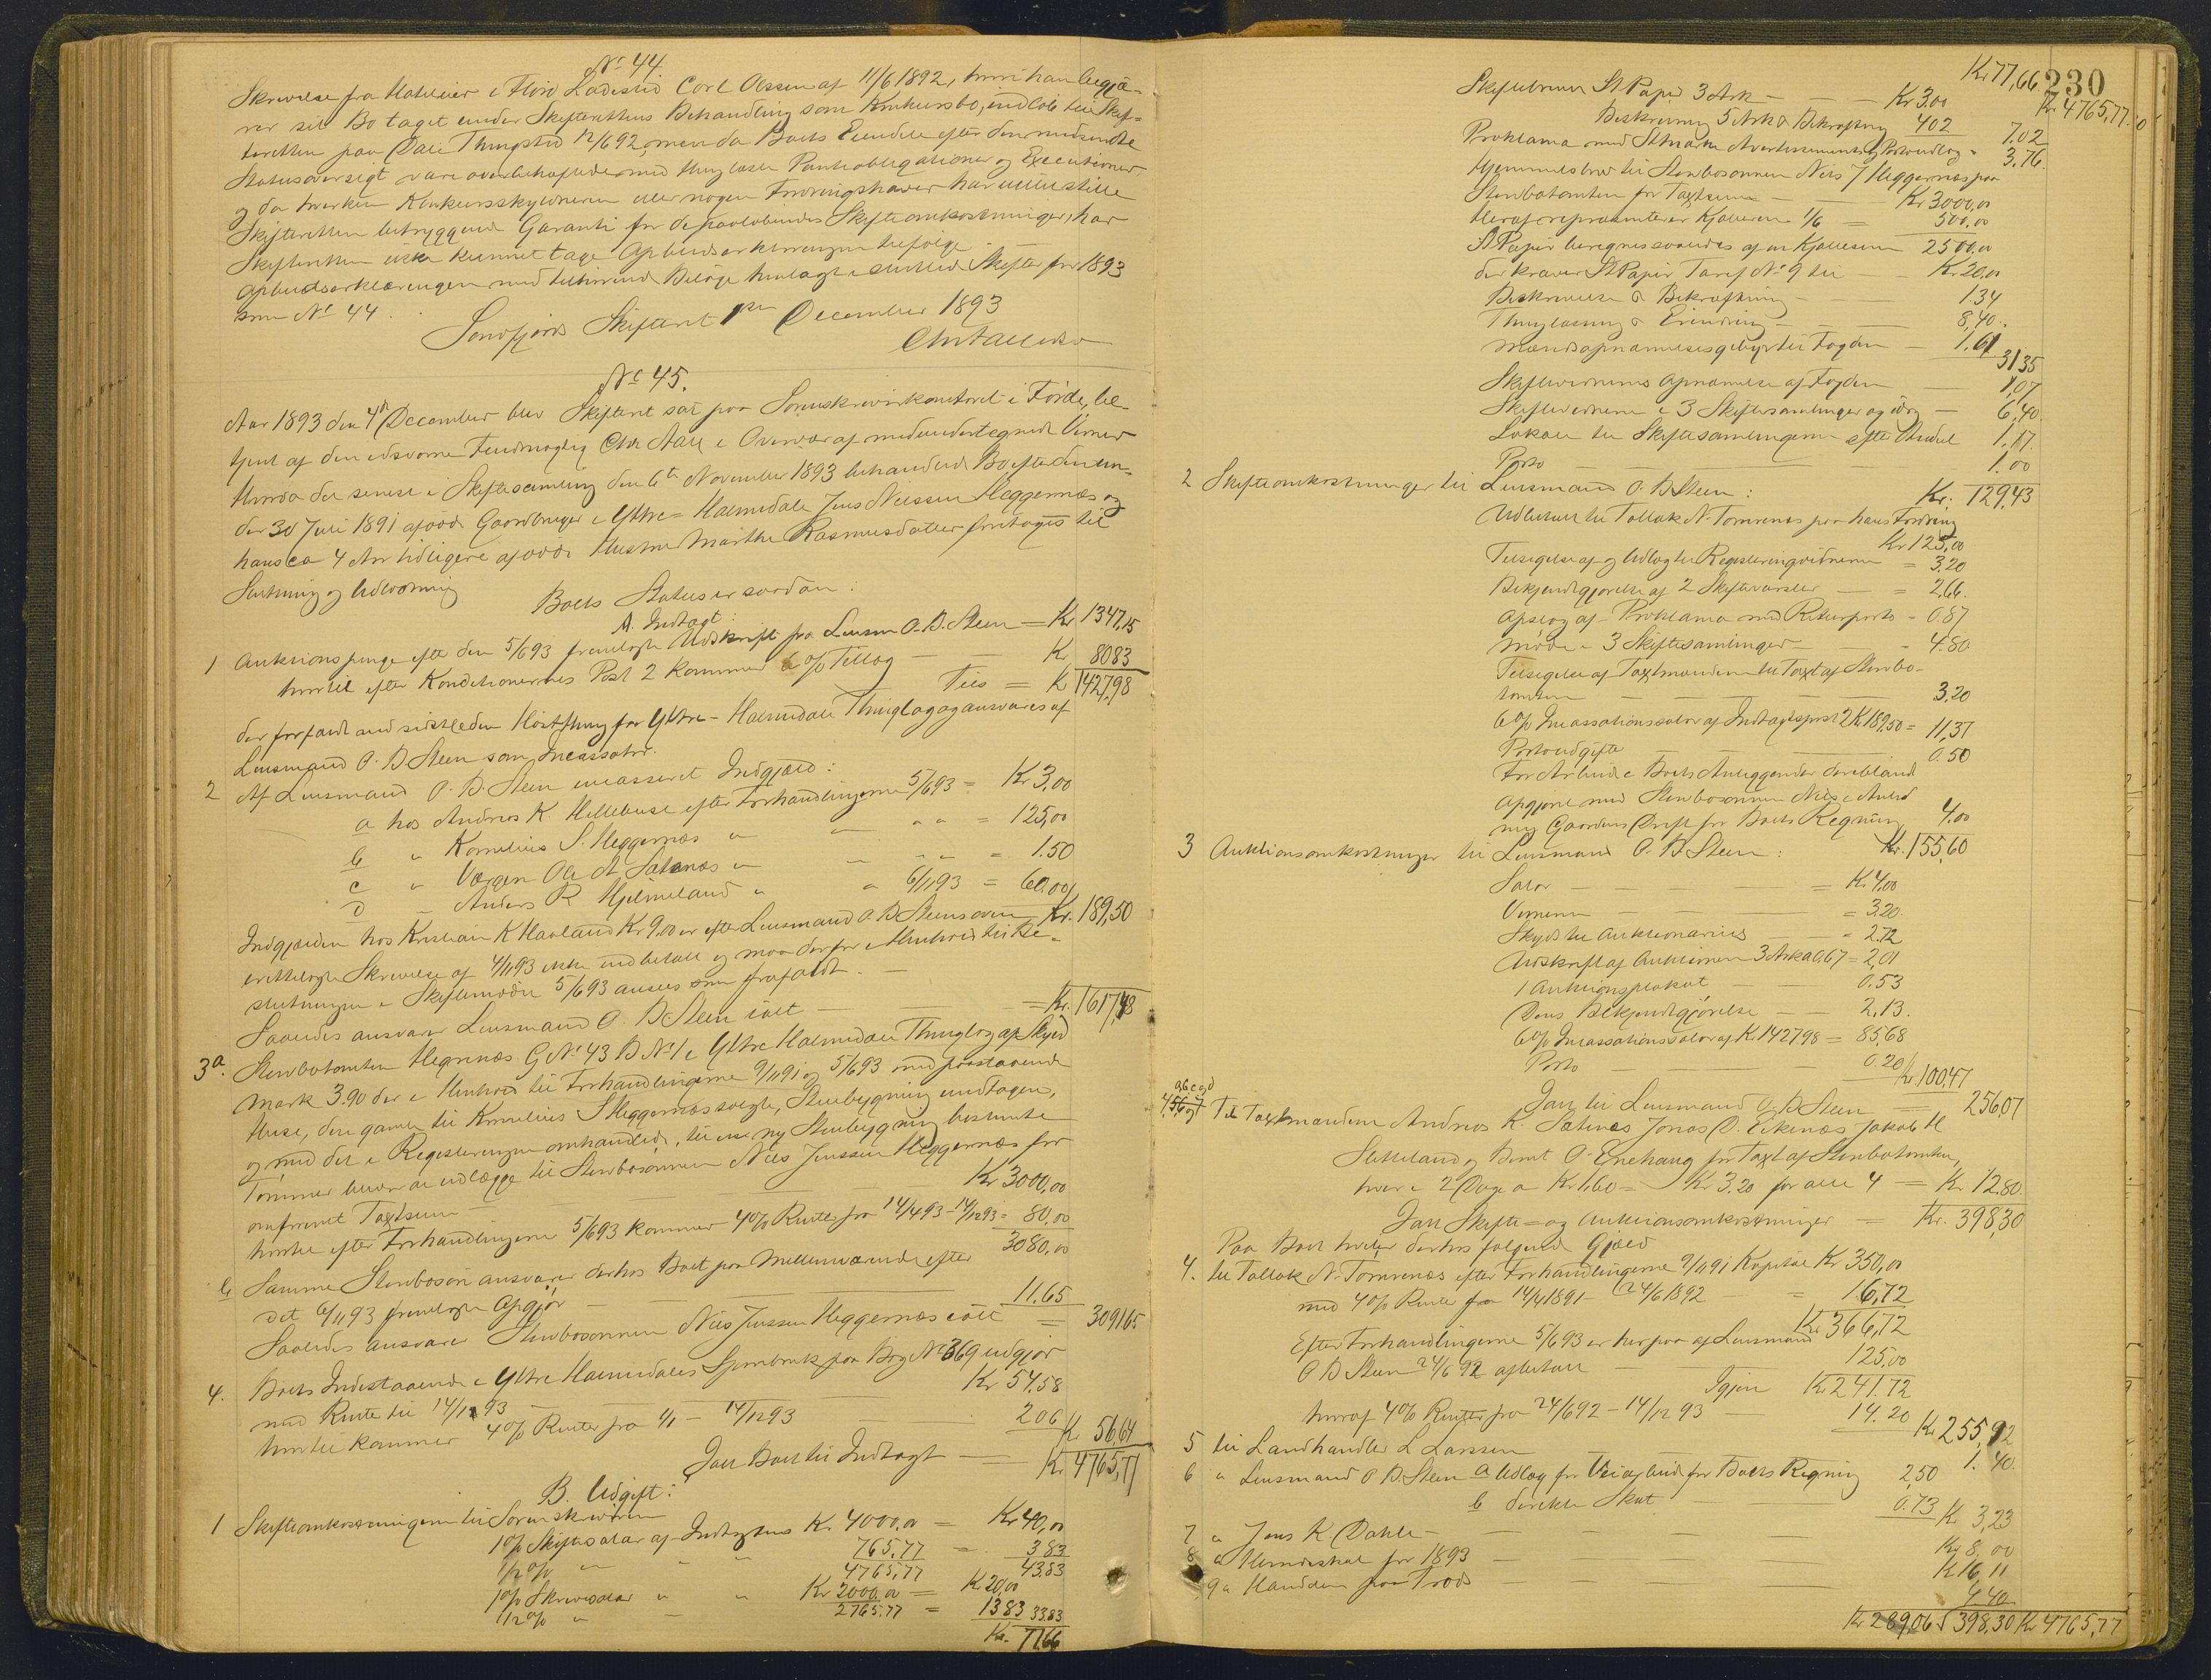 No 44.
Skrivelse fra Hotelier i Florø Ladested Carl Olssen af 11/6 1892, hvori han begjæ-
rer sit Bo taget under Skifterettens Behandling som Konkursbo, indløb til Skif-
teretten paa Dale Thingsted 12/6 92, men da Boets Eiendele efter den medsendte
Statusoversigt vare overbehæftede med thinglæste Panteobligationer og Executioner
og da hverken Konkursskyldneren eller nogen Fordringshaver har villet stille
Skifteretten betryggende Garanti for de paaløbende Skifteomkostninger, har
Skifteretten ikke kunnet tage Opbudserklæringen tilfølge.
Opbudserklæringen med tilhørende Bilage henlagt i sluttede Skifter for 1893
som No 44.
Søndfjords Skifteret 1ste December 1893
Chr Aall
No 45.
Aar 1893 den 4de December blev Skifteret sat paa Sorenskriverkontoret i Førde, be-
tjent af den edsvorne Fuldmægtig Chr Aall i Overvær af medundertegnede Vidner
Hvorda det senest i Skiftesamling den 6te November 1893 behandlede Bo efter den un-
der 30 Juli 1891 afdøde Gaardbruger i Ytre-Holmedal Jens Nilssen Heggernæs og
hans ca 4 Aar tidligere afdøde Hustru Marthe Rasmusdatter foretages til
Slutning og Udlodning
Boets Status er saadan:
A. Indtægt:
1 Auktionspenge efter den 5/6 93 fremlagte Udskrift fra Lensm O. B. Steen = Kr 1347,15
hvortil efter Konditionernes Post 2 kommer 6 % Tillæg — Kr 80 83
Tils = Kr 1427,98
der forfaldt ved sidstleden Høstthing for Ytre-Holmedals Thinglag og ansvares af
Lensmand O. B Steen som Incassator.
2 Af Lensmand O. B. Steen incasseret Indgjæld:
a hos Andreas K. Hellebust efter Forhandlingerne 5/6 93 = Kr 3,00
b " Kornelius S. Heggernæs " " " " = 125,00
c " Værgen Ole A. Satenæs " " " " = 1.50
d " Anders R Hjelmeland " " 6/11 93 = 60.00
Kr. 189,50
Indgjælden hos Kristian K Havland Kr 9.00 er efter Lensmand O. B Steens oven-
ertillagte Skrivelse af 4/11 93 ikke indbetalt og maa derfor i Henhold til Be-
slutningen i Skiftemødet 5/6 93 ansees som frafaldt. —
Saaledes ansvarer Lensmand O. B Steen ialt — = Kr. 1617,48
3a. Stervbotomten Hegrenæs G No 43 B No 1 i Ytre Holmedals Thinglag af Skyld
Mark 3.90 der i Henhold til Forhandlingerne 9/11 91 og 5/6 93 med paastaaende
Huse, den gamle til Kornelius S Heggernæs solgte, Stuebygning undtagen,
og med det i Registreringen omhandlede, til en ny Stuebygning bestemte
Tømmer bliver at udlægge til Stervbosønnen Nils Jenssen Heggernæs for
omforenet Taxtsum — Kr 3000,00
hvortil efter Forhandlingerne 5/6 93 kommer 4 % Renter fra 14/4 93 - 14/12 93 = 80,00
3080,00
b Samme Stervbosøn ansvarer derhos Boet paa Mellemværende efter
det 6/11 93 fremlagte Opgjør — 11.65
Saaledes ansvarer Stervbosønnen Nils Jenssen Heggernæs ialt = 3091 65
4. Boets Indestaaende i Ytre Holmedals Sparebank paa Bog No 369 udgjør
med Rente til 14/12 93 — Kr 54,58
hvortil kommer 4 % Renter fra 1/1 - 14/12 93 2.06
Kr 56,64
Jalt Boet til Indtægt — Kr 4765,77
B. Udgift:
1 Skifteomkostningerne til Sorenskriveren
1 % Skiftesalær af Indtægtens Kr. 4000.00 = Kr 40,00
1/2 % " " " 765.77 = 3.83
4765,77 43.83
1 % Skriversalær " " Kr 2000.00 = Kr 20,00
1/2 % " " 2765.77 = 13 83 33.83
Kr. 77,66
230
Kr 77,66 Kr 4765,77.
Skiftebrevet St Papir 3 Ark — Kr 3.00
Beskrivning 5 Ark & Bekræftning 4 02 7.02
Proklama med Stmærke Avertissement og Portoudlæg = 3.76
Hjemmelsbrev til Stervbosønnen Nils J Heggernæs paa
Stervbotomten for Taxtsum — Kr 3000,00
Heraf repræsenterer Kjøberen 1/6 = 500,00
St Papir beregnes saaledes af en Kjøbesum 2500,00
der kræver St Papir Tarif No 9 til — Kr. 20,00
Beskrivelse & Bekræftning — 1.34
Thinglæsning & Erindring — 8,40
Mændsopnævnelsesgebyr til Fogden — 1.61
31 35
Skiftevidnernes Opnævnelse af Fogden — 1,07
Skiftevidnerne i 3 Skiftesamlinger og idag — 6,40
Lokale til Skiftesamlingerne efter Andel 1,17
Porto — 1.00
Kr. 129,43
2 Skifteomkostninger til Lensmand O. B Steen:
Udbetalt til Tollak N. Tornenes paa hans Fordring
Kr 125,00
Tilsigelse af og Udlæg til Registreringsvidnerne = 3,20
Bekjendtgjørelse af 2 Skiftevarsler — = 2,66.
Opslag af Proklama med Returporto - 0.87
Møde i 3 Skiftesamlinger — 4.80
Tilsigelse af Taxtmændene til Taxt af Stervbo-
tomten — 3,20
6 % Incassationssalær af Indtægtspost 2 Kr 189,50 = 11,37
Portoudgifte — 0.50
For Arbeide i Boets Anliggender deriblandt
Opgjøret med Stervbosønnen Nils i Anled
ning Gaardens Drift for Boets Regning 4.00
Kr. 155,60
3 Auktionsomkostninger til Lensmand O. B Steen:
Salær — = Kr 4,00
Vidnerne — = 3.20.
Skyds til Auktionarius — = 2.72
Udskrift af Auktionen 3 Ark a 0,67 = 2,01
1 Auktionsplakat — 0.53
Dens Bekjendtgjørelse — 2,13.
6 % Incassationssalær af Kr 1427 98 = 85,68
Porto — 0.20
Kr 100,47
Jalt til Lensmand O. B Steen = 256,07
Til Taxtmændene Andreas K. Satenes Jonas D. Eikenæs Jakob H
Sletteland og Bernt O. Enehaug for Taxt af Stervbotomten,
hver i 2 Dage a Kr 1.60 = Kr 3.20 for alle 4 = Kr 12.80
Jalt Skifte- og Auktionsomkostninger = Kr. 398,30
Paa Boet hviler derhos følgende Gjæld
4. til Tollak N. Tornenæs efter Forhandlingerne 9/11 91 Kapital Kr 350,00
med 4 % Rente fra 14/4 1891 - 24/6 1892 = 16,72
Kr 366,72
Efter Forhandlingerne 5/6 93 er herpaa af Lensmand
O B Steen 24/6 92 afbetalt — 125,00
Igjen Kr 241.72
hvoraf 4 % Renter fra 24/6 92 - 14/12 93 — 14.20
Kr 255,92
5 til Landhandler L Larssen — 1.40.
6 " Lensmand O B Steen a Udlæg for Veiarbeide for Boets Regning 2,50
b direkte Skat — 0.73
Kr 3,23
7 " Jens K. Dahle — Kr 8,00
8 " Herredsskat for 1893 — Kr 16,11
9 " — 4 40
Kr 289,06 398,30 Kr 4765,77